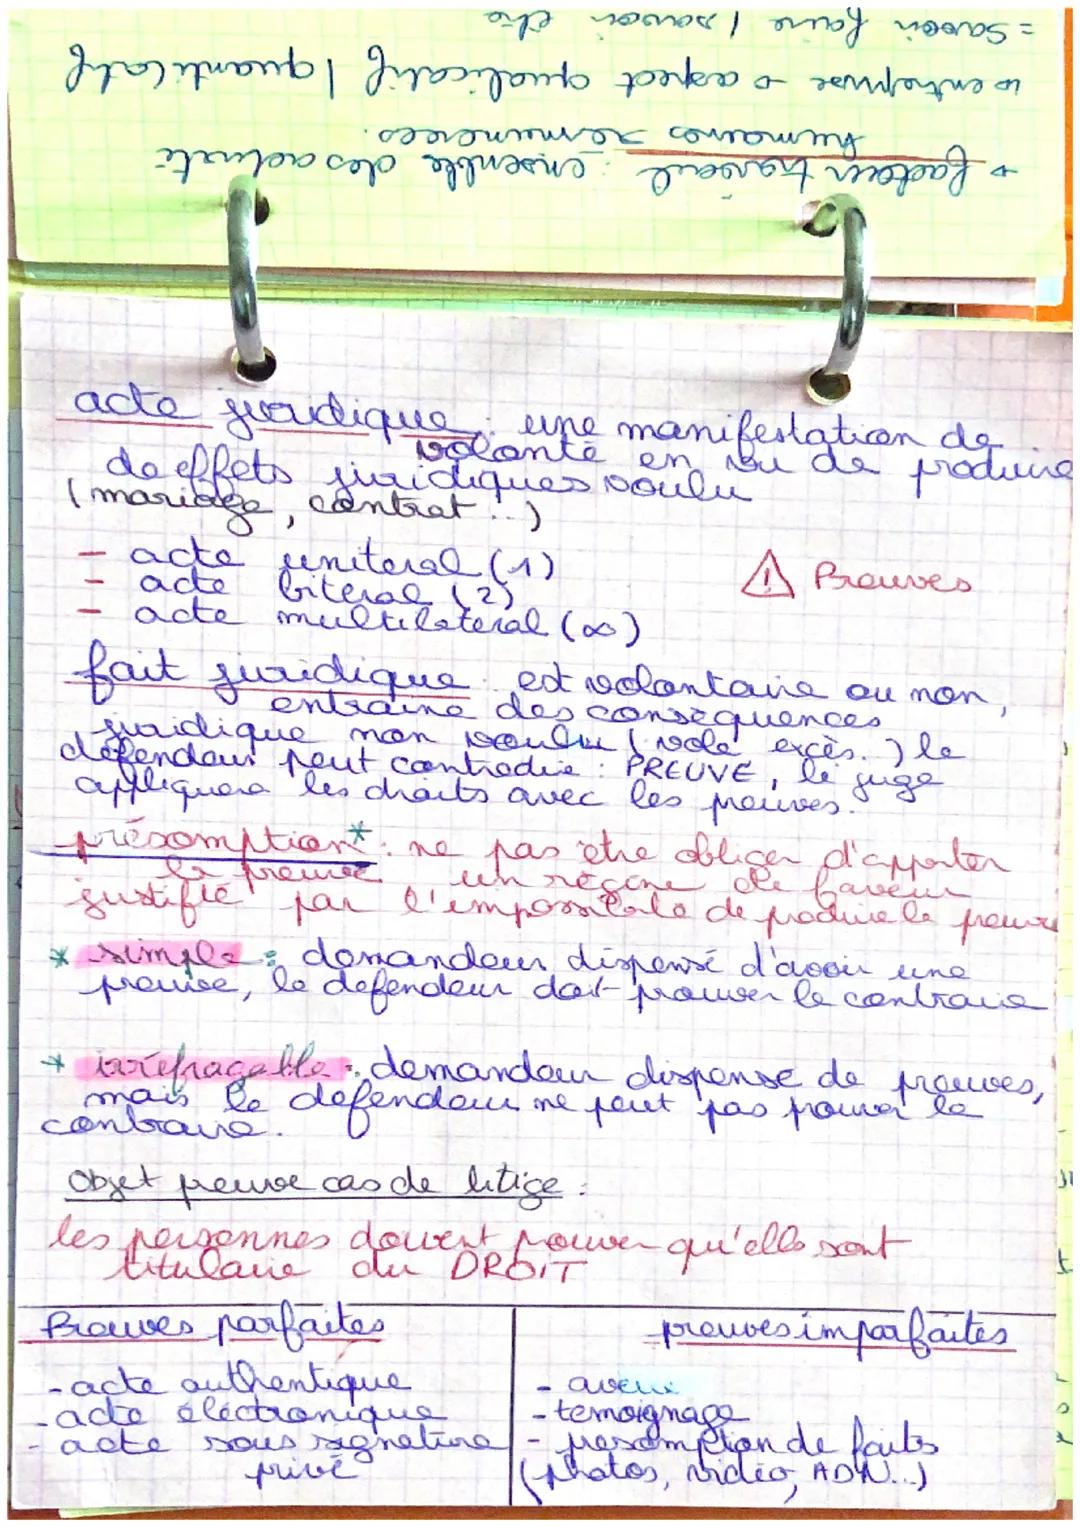 → facteur travail : ensemble des activité
humaines rémunérées.
↳ entreprise → aspect qualicatif / quanticatif
= Savoir faire / savoir être
acte juridique : une manifestation de
volonté en vu de produire
de effets juridiques voulu
(mariage, contrat...)
- acte uniteral (1)
- acte biteral (2)
⚠ Preuves
- acte multilateral (∞)
fait juridique : est volontaire ou non,
entraine des conséquences
juridique non voulu (vole excès..) le
défendeur peut contredire : PREUVE, le juge
appliquera les droits avec les preuves.
présomption* : ne pas être obliger d'apporter
la preuve un régime de faveur
justifié par l'impossible de produire la preuve
* simple : demandeur dispensé d'avoir une
preuve, le défendeur doit prouver le contraire
* irréfragable : demandeur dispense de preuves,
mais le défendeur ne peut pas prouver le
contraire.
Objet preuve cas de litige :
les personnes doivent prouver qu'elle sont
titulaire du DROIT
Preuves parfaites
- acte authentique
- acte électronique
- acte sous signature
privé
preuves imparfaites
- aveux
- temoignage
- presomption de faits
(photos, vidéo, ADN...)